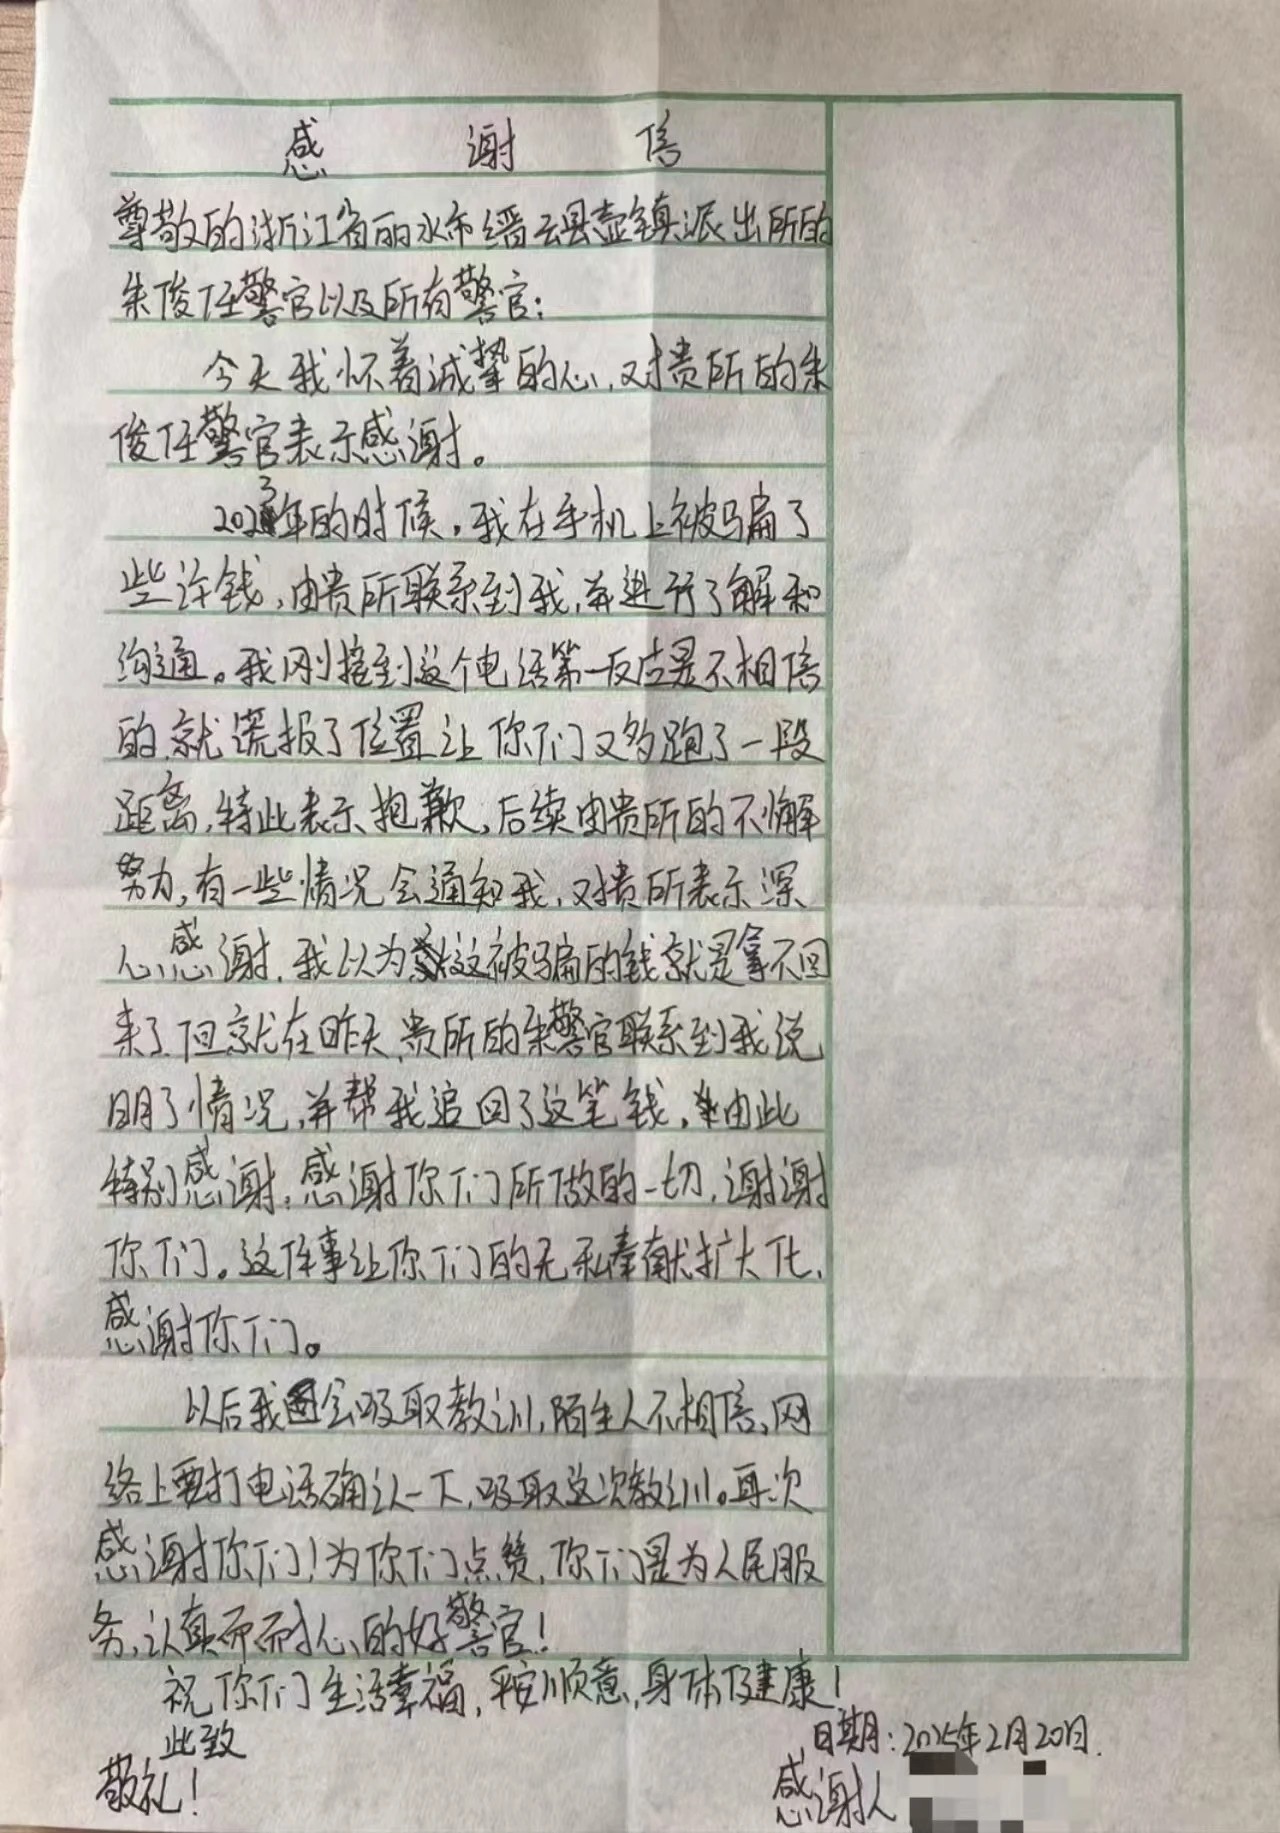 感谢信
尊敬的浙江省丽水市缙云县壶镇派出所的
朱俊任警官以及所有警官：
今天我怀着诚挚的心，对贵所的朱
俊任警官表示感谢。
2023年的时候，我在手机上被骗了
些许钱，由贵所联系到我，并进行了解和
沟通。我刚接到这个电话第一反应是不相信
的，就谎报了位置让你们又多跑了一段
距离，特此表示抱歉，后续由贵所的不懈
努力，有一些情况会通知我，对贵所表示深
心感谢，我以为这被骗的钱就是拿不回
来了，但就在昨天，贵所的朱警官联系到我说
明了情况，并帮我追回了这笔钱，由此
特别感谢，感谢你们所做的一切，谢谢
你们。这件事让你们的无私奉献扩大化，
感谢你们。
以后我会吸取教训，陌生人不相信，网
络上要打电话确认一下，吸取这次教训。再次
感谢你们！为你们点赞，你们是为人民服
务，认真而耐心的好警官！
祝你们生活幸福，平安顺意，身体健康！
此致
日期：2025年2月20日.
敬礼！
感谢人